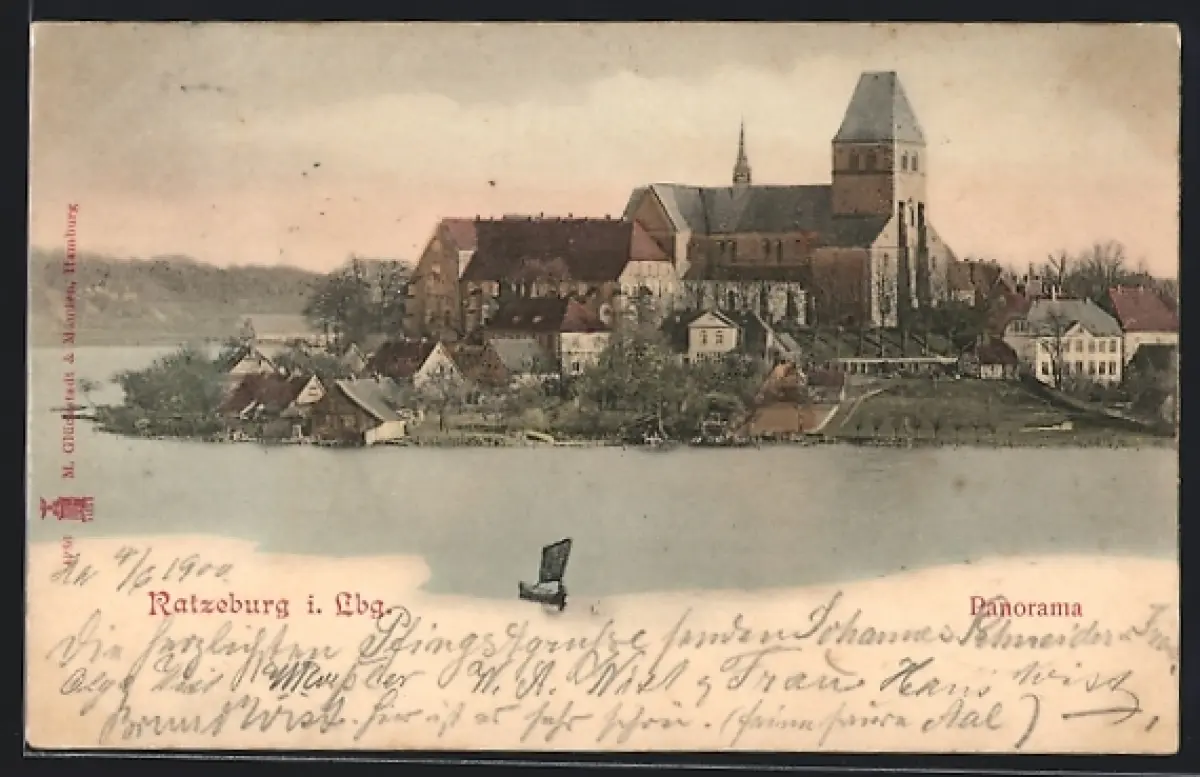 M. Glückstadt & Münden, Hamburg
4/6 1900
Ratzeburg i. Lbg.
Panorama
Die herzlichsten Pfingstgrüße senden Johannes Schneider u Frau
Olga W. A. Wist u Frau Hans Wist
Bruno Wist. hier ist es sehr schön. (feine saure Aal)